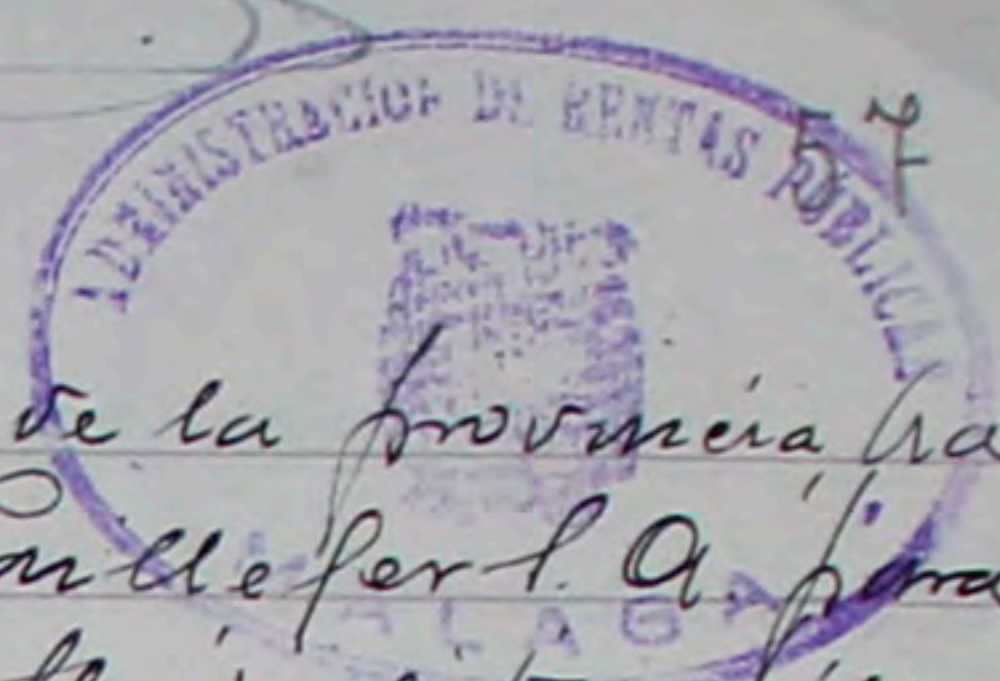 ADMINISTRACION DE RENTAS PUBLICAS
57
de la provincia ha
S. A. para
MALAGA